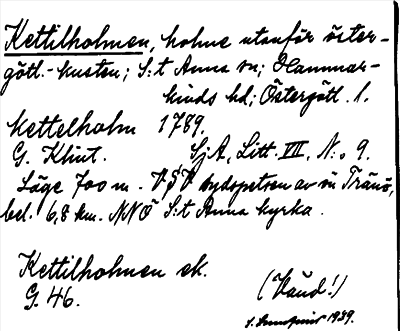 Kettilholmen, holme utanför öster-
götl.-kusten; S:t Anna sn; Hammar-
kinds hd; Östergötl. l.
Kettelholm 1789.
G. Klint. SjA, Litt. VII, N:o 9.
Läge 700 m. VSV sydspetsen av ön Tränö,
bel. 6,8 km. NNO S:t Anna kyrka.
Kettilholmen ek.
G. 46. (Vänd!)
1939.